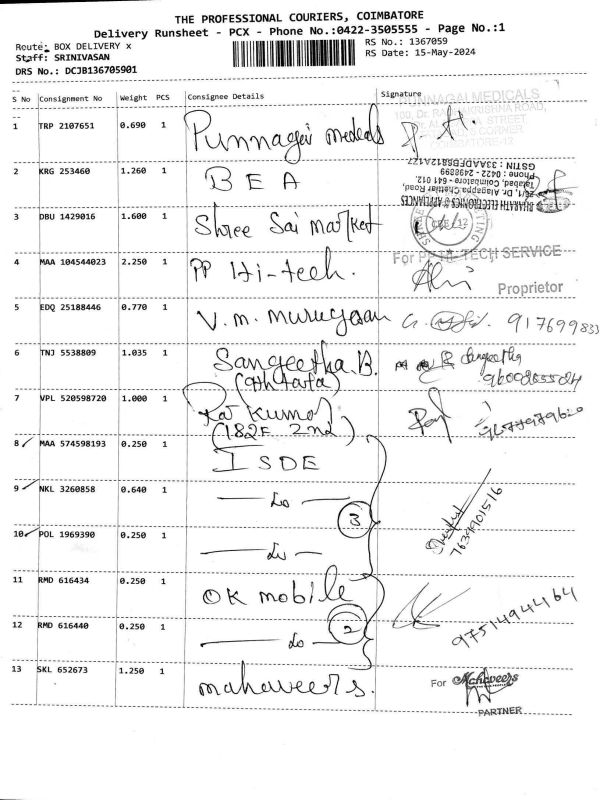 THE PROFESSIONAL COURIERS, COIMBATORE
Delivery Runsheet - PCX - Phone No.:0422-3505555 - Page No.:1
Route: BOX DELIVERY x
RS No.: 1367059
Staff: SRINIVASAN
RS Date: 15-May-2024
DRS No.: DCJB136705901
S No Consignment No Weight PCS Consignee Details Signature
PUNNAGAI MEDICALS
1 TRP 2107651 0.690 1 Punnagai medicals
COIMBATORE-12
2 KRG 253460 1.260 1 BEA
BHARATH ELECTRONICS & APPLIANCES
26/1, Dr. Alagappa Chettiar Road,
Tatabad, Coimbatore - 641 012.
Phone : 0422 - 2498899
GSTIN : 33AADFB6812A1Z7
3 DBU 1429016 1.600 1 Shree Sai market
4 MAA 104544023 2.250 1 PP Hi-tech.
TECH SERVICE
Proprietor
5 EDQ 25188446 0.770 1 V. m. murugasan 917699833
6 TNJ 5538809 1.035 1 Sangeetha.B. Sangeetha
7 VPL 520598720 1.000 1 Raj Kumar
(182F 2nd)
8 MAA 574598193 0.250 1 ISDE
9 NKL 3260858 0.640 1 — do —
3
10 POL 1969390 0.250 1 — do —
7639901516
11 RMD 616434 0.250 1 OK mobile
2
9751494464
12 RMD 616440 0.250 1 — do —
13 SKL 652673 1.250 1 mahaveers.
For Mahaveers
PARTNER